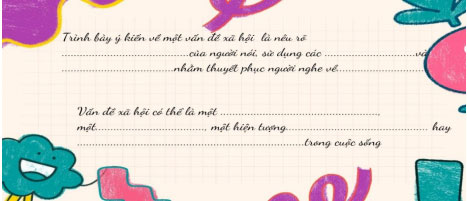 Trình bày ý kiến về một vấn đề xã hội là nêu rõ
........................................của người nói, sử dụng các ............................và
...................................nhằm thuyết phục người nghe về...........................
Vấn đề xã hội có thể là một ................................................,
một................................., một hiện tượng........................................... hay
.....................................................................trong cuộc sống